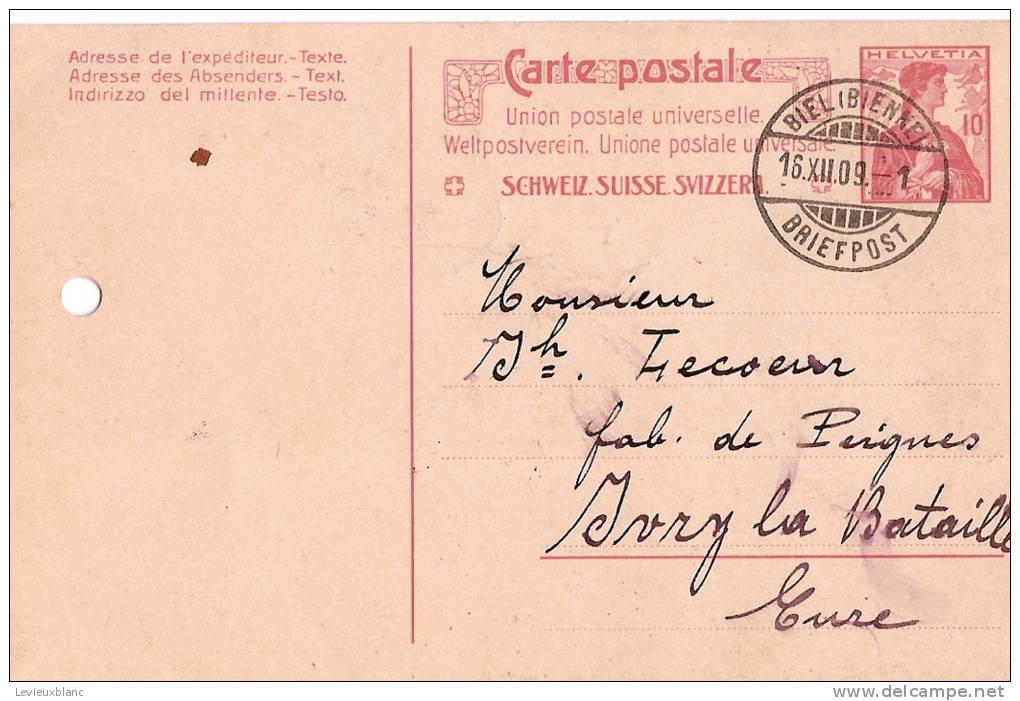 Adresse de l'expéditeur.-Texte.
Adresse des Absenders.-Text.
Indirizzo del mittente.-Testo.
Carte postale
Union postale universelle.
Weltpostverein. Unione postale universale.
SCHWEIZ. SUISSE. SVIZZERA.
HELVETIA
10
BIEL (BIENNE)
16.XII.09.-1
BRIEFPOST
Monsieur
Jh. Lecoeur
fab. de Peignes
Ivry la Bataille
Eure
Levieuxblanc
www.delcampe.net